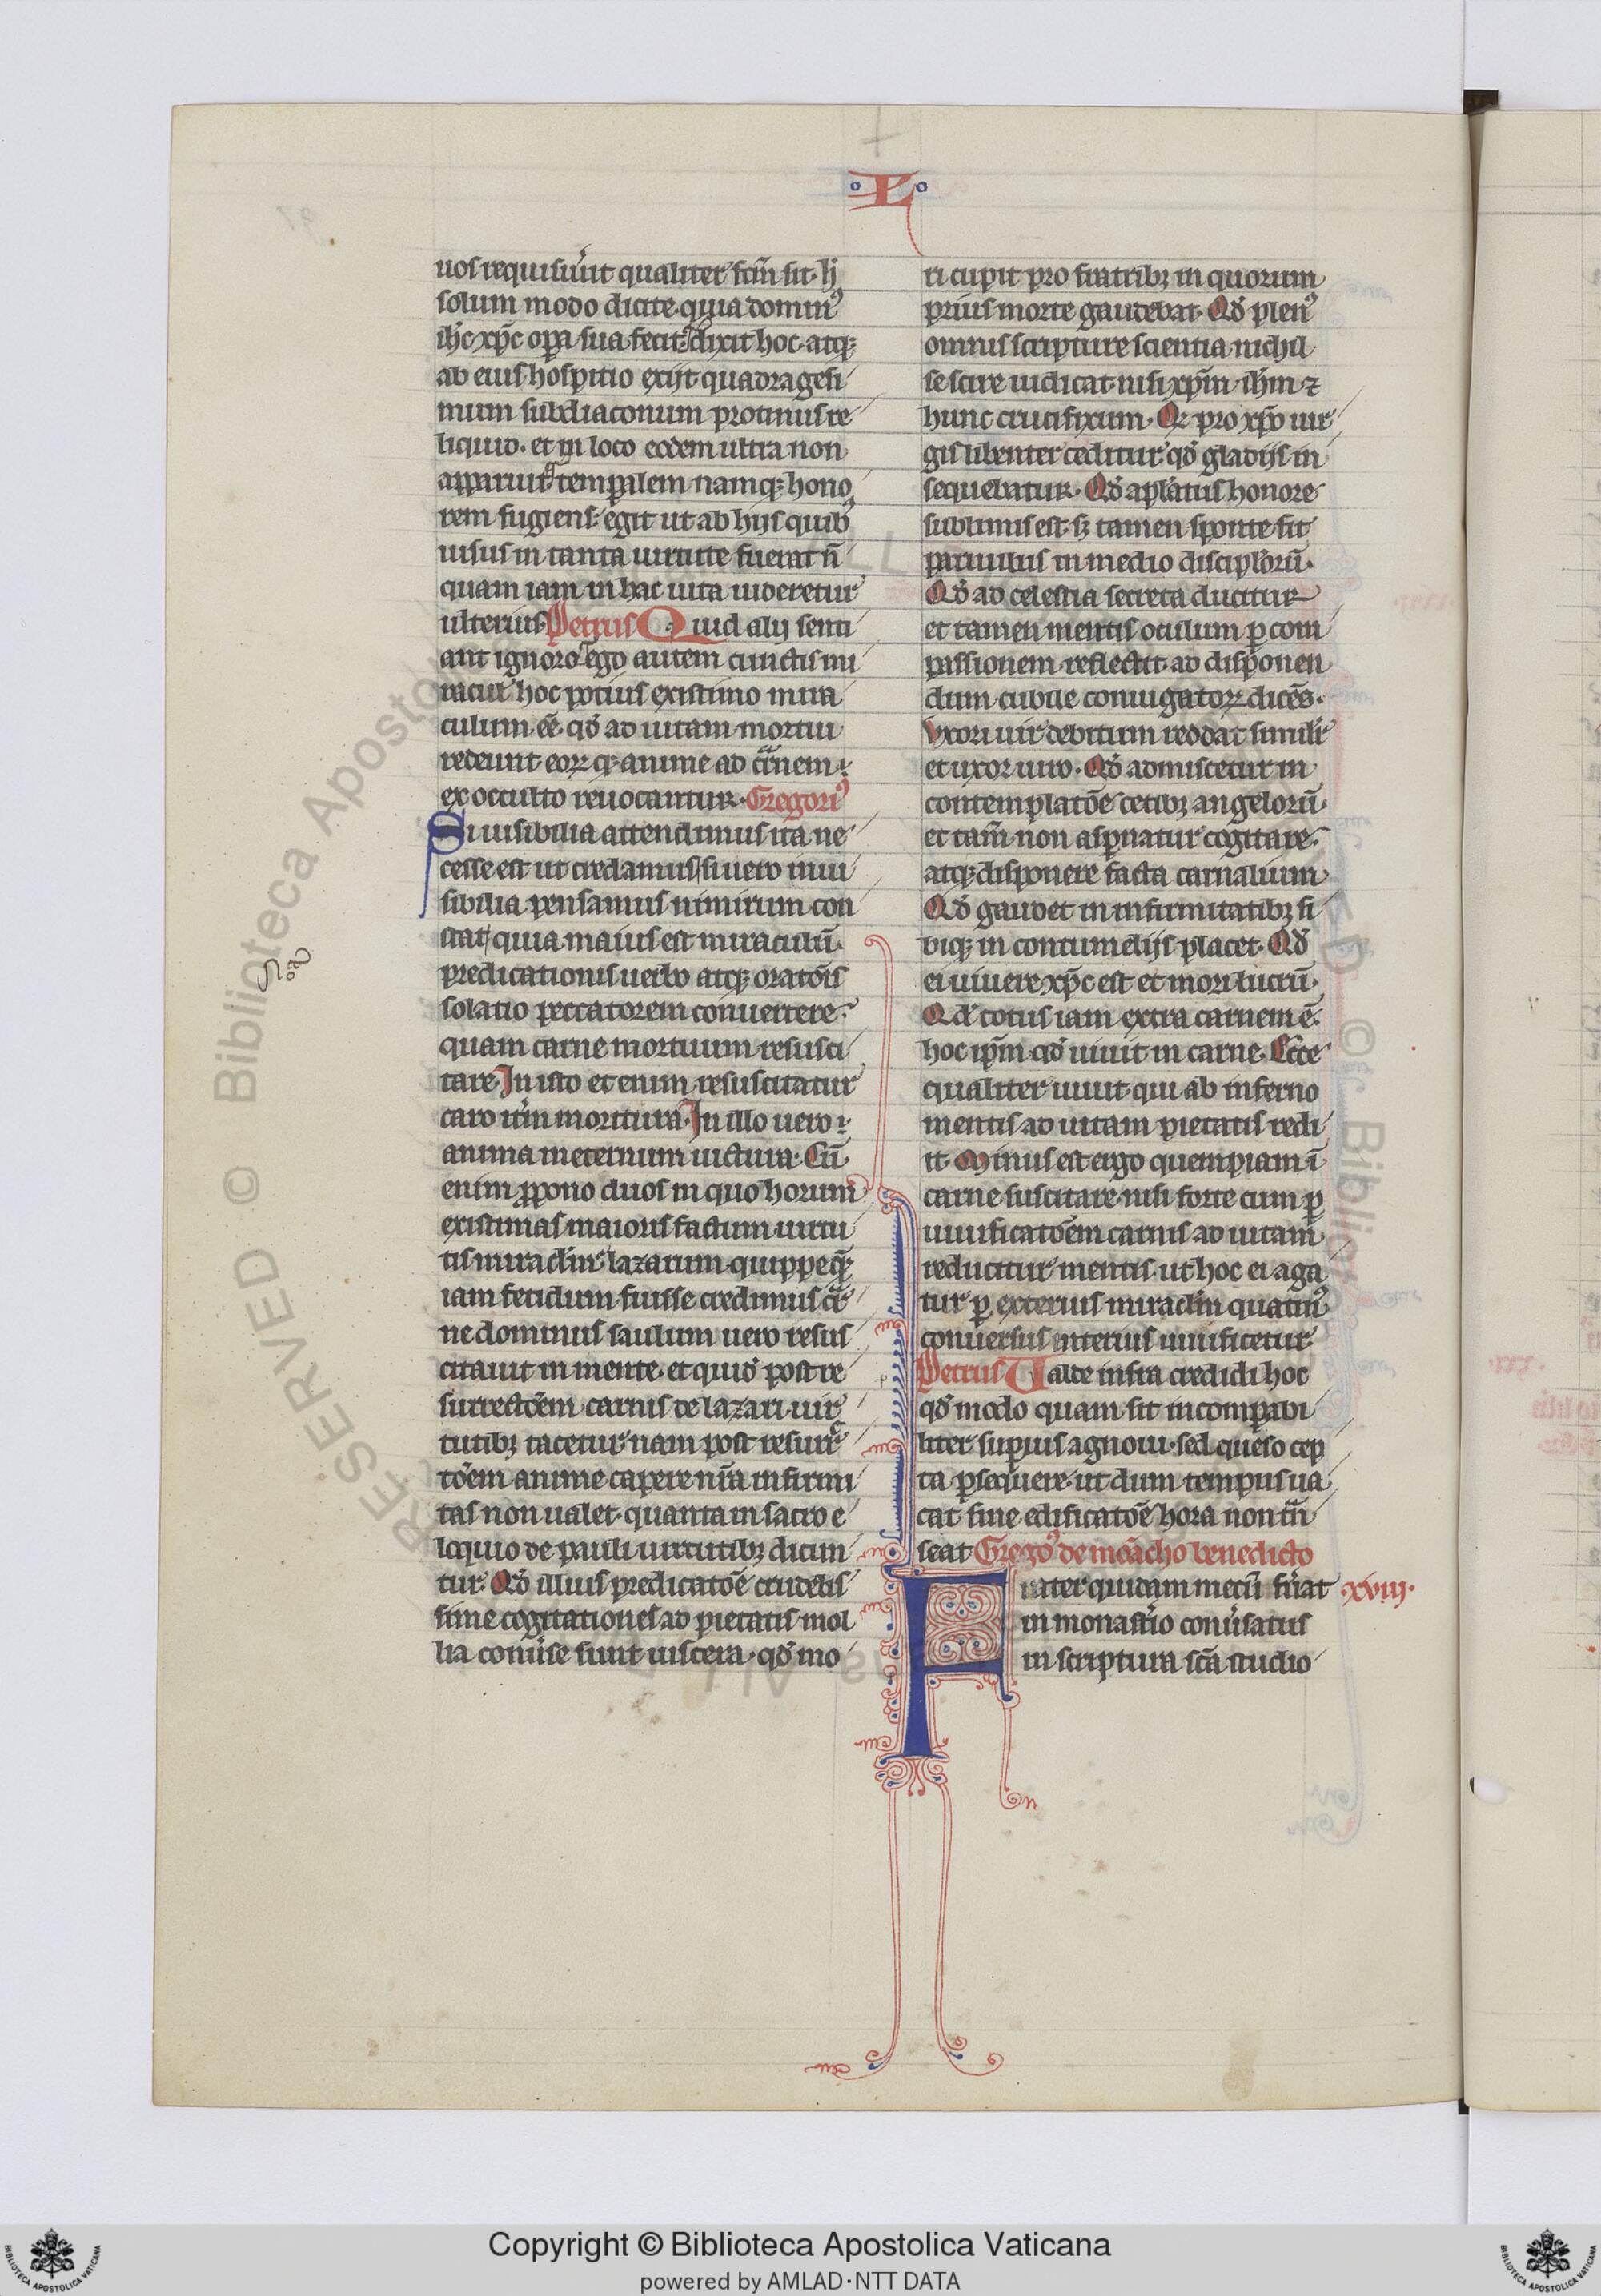 L
uos requisiu̾int qualit̾er fcm̄ sit. hͥ
solum modo dicite. quia dominꝰ
ih̄c xp̄c opa sua fecit. dixit hoc. atqꝫ
ab eius hospitio exijt quadragesi
mum subdiaconum protinus re
liquid. et in loco eodem ultra non
apparuit. temꝑalem namqꝫ hono
rem fugiens. egit ut ab hijs quibꝰ
uisus in tanta uirtute fuerat n̄
quam iam in hac uita uideretur
ulterius. Petrus Quid alij senti
ant ignoro. ego autem cunctis mi
racul̾ hoc pocius existimo mira
culum ēē. qd̾ ad uitam mortui
redeunt eoꝝ qꝫ anime ad cͣnem
ex occulto reuocantur. Gregoriꝰ
Si uisibilia attendimus ita ne
cesse est ut credamus. si uero inui
sibilia pensamus nimirum con
stat. quia maius est miraculū
predicationis uerbo atqꝫ orat̄ois
solatio peccatorem conuertere.
quam carne mortuum resusci
tare. In isto et enim resuscitatur
caro it̄m moritura. In illo uero.
anima in eternum uictura. Cū
enim ꝓpono duos in quo horum
existimas maioris factum uirtu
tis miraclm̄. lazarum quippe qͣꝫ
iam fetidum fuisse credimus cͣr
ne dominus. saulum uero resus
citauit in mente. et quid̾ post re
surrect̄oem carnis de lazari uir
tutibꝫ tacetur. nam post resurre
t̄oem anime capere nr̄a infirmi
tas non ualet. quanta in sacro e
loquio de pauli uirtutibꝫ dicun
tur. Qd̾ illius predicat̄oe crudelis
sime cogitationes ad pietatis mol
lia conu̾se sunt uiscera. qd̾ mo
ri cupit pro fratribꝫ in quorum
prius morte gaudebat. Qd̾ plenꝰ
omnis scripture scientia nichil
se scire iudicat nisi xp̄m ih̄m ⁊
hunc crucifixum. Qꝛ pro xp̄o uir
gis libenter ceditur qd̾ gladijs in
sequebatur. Qd̾ apl̄atus honore
sublimis est. sꝫ tamen sponte fit
paruulus in medio discipl̾orū.
Qd̾ ad celestia secreta ducitur
et tamen mentis oculum ꝑ com
passionem reflectit ad disponen
dum cubile coniugatoꝝ dicēs.
Vxori uir debitum reddat simil̾r
et uxor uiro. Qd̾ admiscetur in
contemplat̄oe cetibꝫ angelorū.
et tam̄ non aspnatur cogitare.
atqꝫ disponere facta carnalium.
Qd̾ gaudet in infirmitatibꝫ si
biqꝫ in contumelijs placet. Qd̾
ei uiuere xp̄c est et mori lucrū.
Qd̾ totus iam extra carnem ē.
hoc ip̄m qd̾ uiuit in carne. Ecce
qualiter uiuit. qui ab inferno
mentis ad uitam pietatis redi
it. Minus est ergo quempiam ī
carne suscitare. nisi forte cum ꝑ
uiuificat̄oem carnis ad uitam
reducitur mentis ut hoc ei aga
tur ꝑ exterius miraclm̄ quatinꝰ
conuersus interius uiuificetur.
Petrus Valde infra credidi hoc
qd̾ modo quam sit incomꝑabi
liter supius agnoui. sed queso cep
ta ꝑsequere. ut dum tempus ua
cat sine edificat̄oe hora non tn̄
seat Gregoꝰ de mōacho benedicto
Frater quidam mecū fu̾at xviij.
in monast̾io conu̾satus
in scriptura scā studio
RESERVED © Biblioteca Apostolica
Copyright © Biblioteca Apostolica Vaticana
powered by AMLAD·NTT DATA